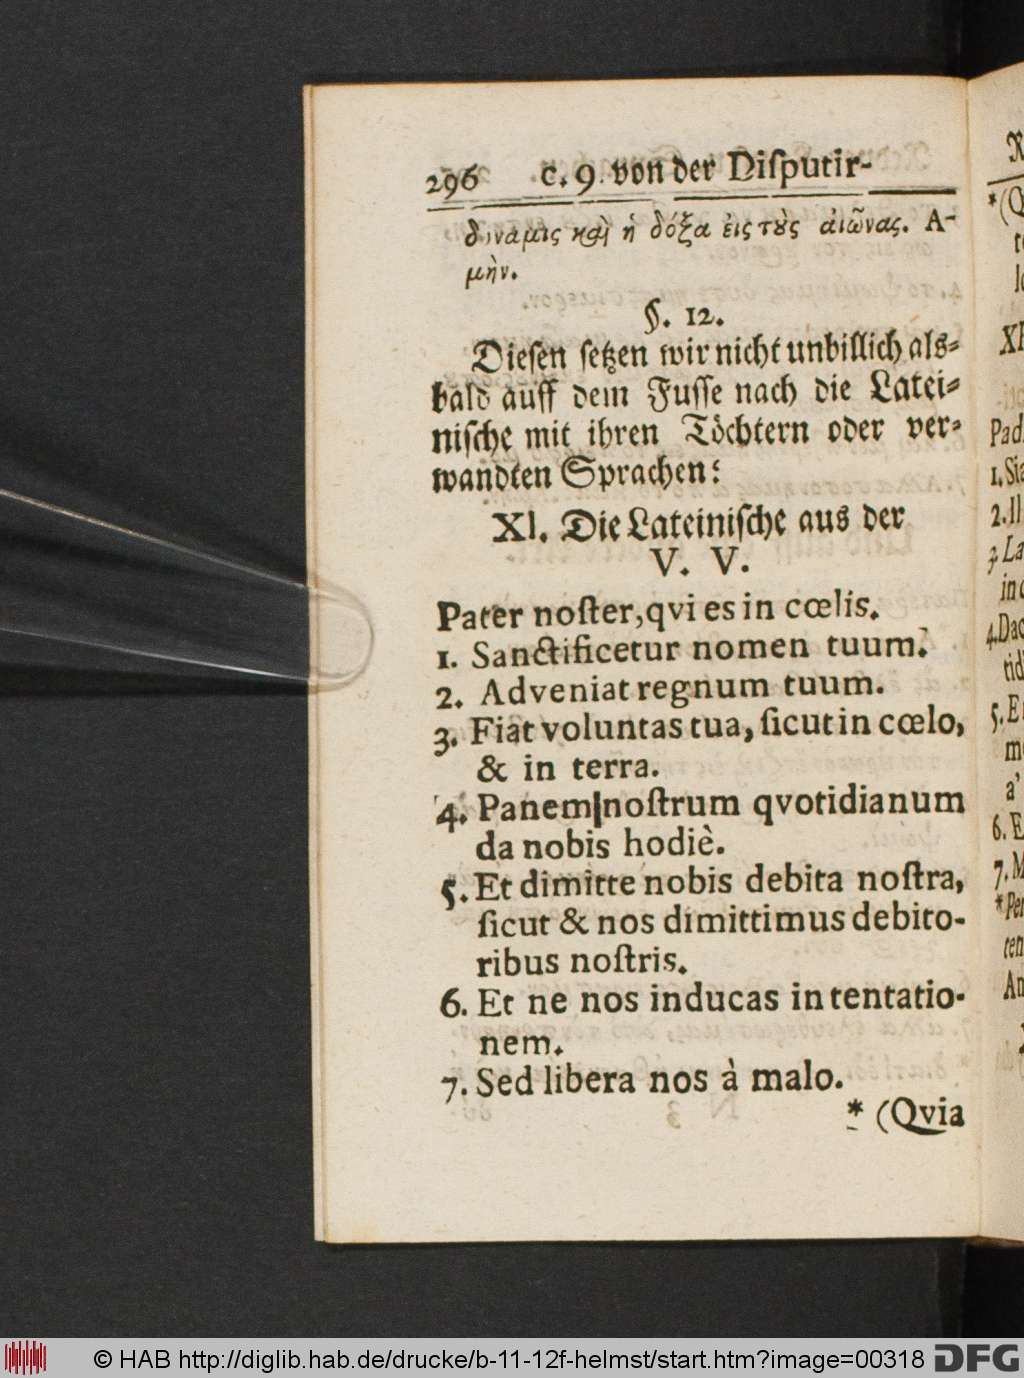 296 c. 9. von der Diſputir-
δύναμις καὶ ἡ δόξα εἰς τȣ̀ς αἰῶνας. Α-
μὴν.
§. 12.
Dieſen ſetzen wir nicht unbillich als-
bald auff dem Fuſſe nach die Latei-
niſche mit ihren Töchtern oder ver-
wandten Sprachen:
XI. Die Lateiniſche aus der
V. V.
Pater noſter, qvi es in cœlis.
1. Sanctificetur nomen tuum.
2. Adveniat regnum tuum.
3. Fiat voluntas tua, ſicut in cœlo,
& in terra.
4. Panem noſtrum qvotidianum
da nobis hodiè.
5. Et dimitte nobis debita noſtra,
ſicut & nos dimittimus debito-
ribus noſtris.
6. Et ne nos inducas in tentatio-
nem.
7. Sed libera nos à malo.
* (Qvia
*(Q
XI
Pad
1. Sia
2. Il
3. La
5. E
a'
6. E
7. M
© HAB http://diglib.hab.de/drucke/b-11-12f-helmst/start.htm?image=00318 DFG